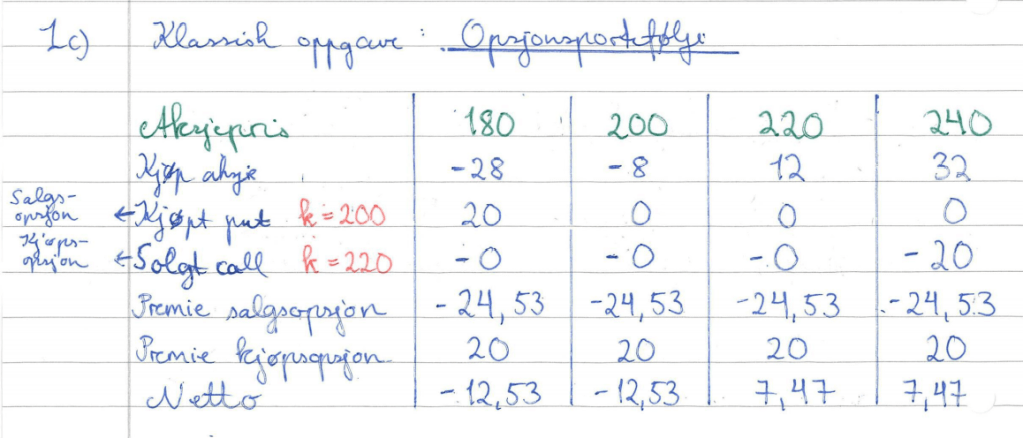 1c) Klassisk oppgave : Opsjonsportefølje
Aksjepris 180 200 220 240
Kjøp aksje -28 -8 12 32
Salgs-
opsjon ← Kjøpt put k = 200 20 0 0 0
Kjøps-
opsjon ← Solgt call k = 220 -0 -0 -0 -20
Premie salgsopsjon -24,53 -24,53 -24,53 -24,53
Premie kjøpsopsjon 20 20 20 20
Netto -12,53 -12,53 7,47 7,47